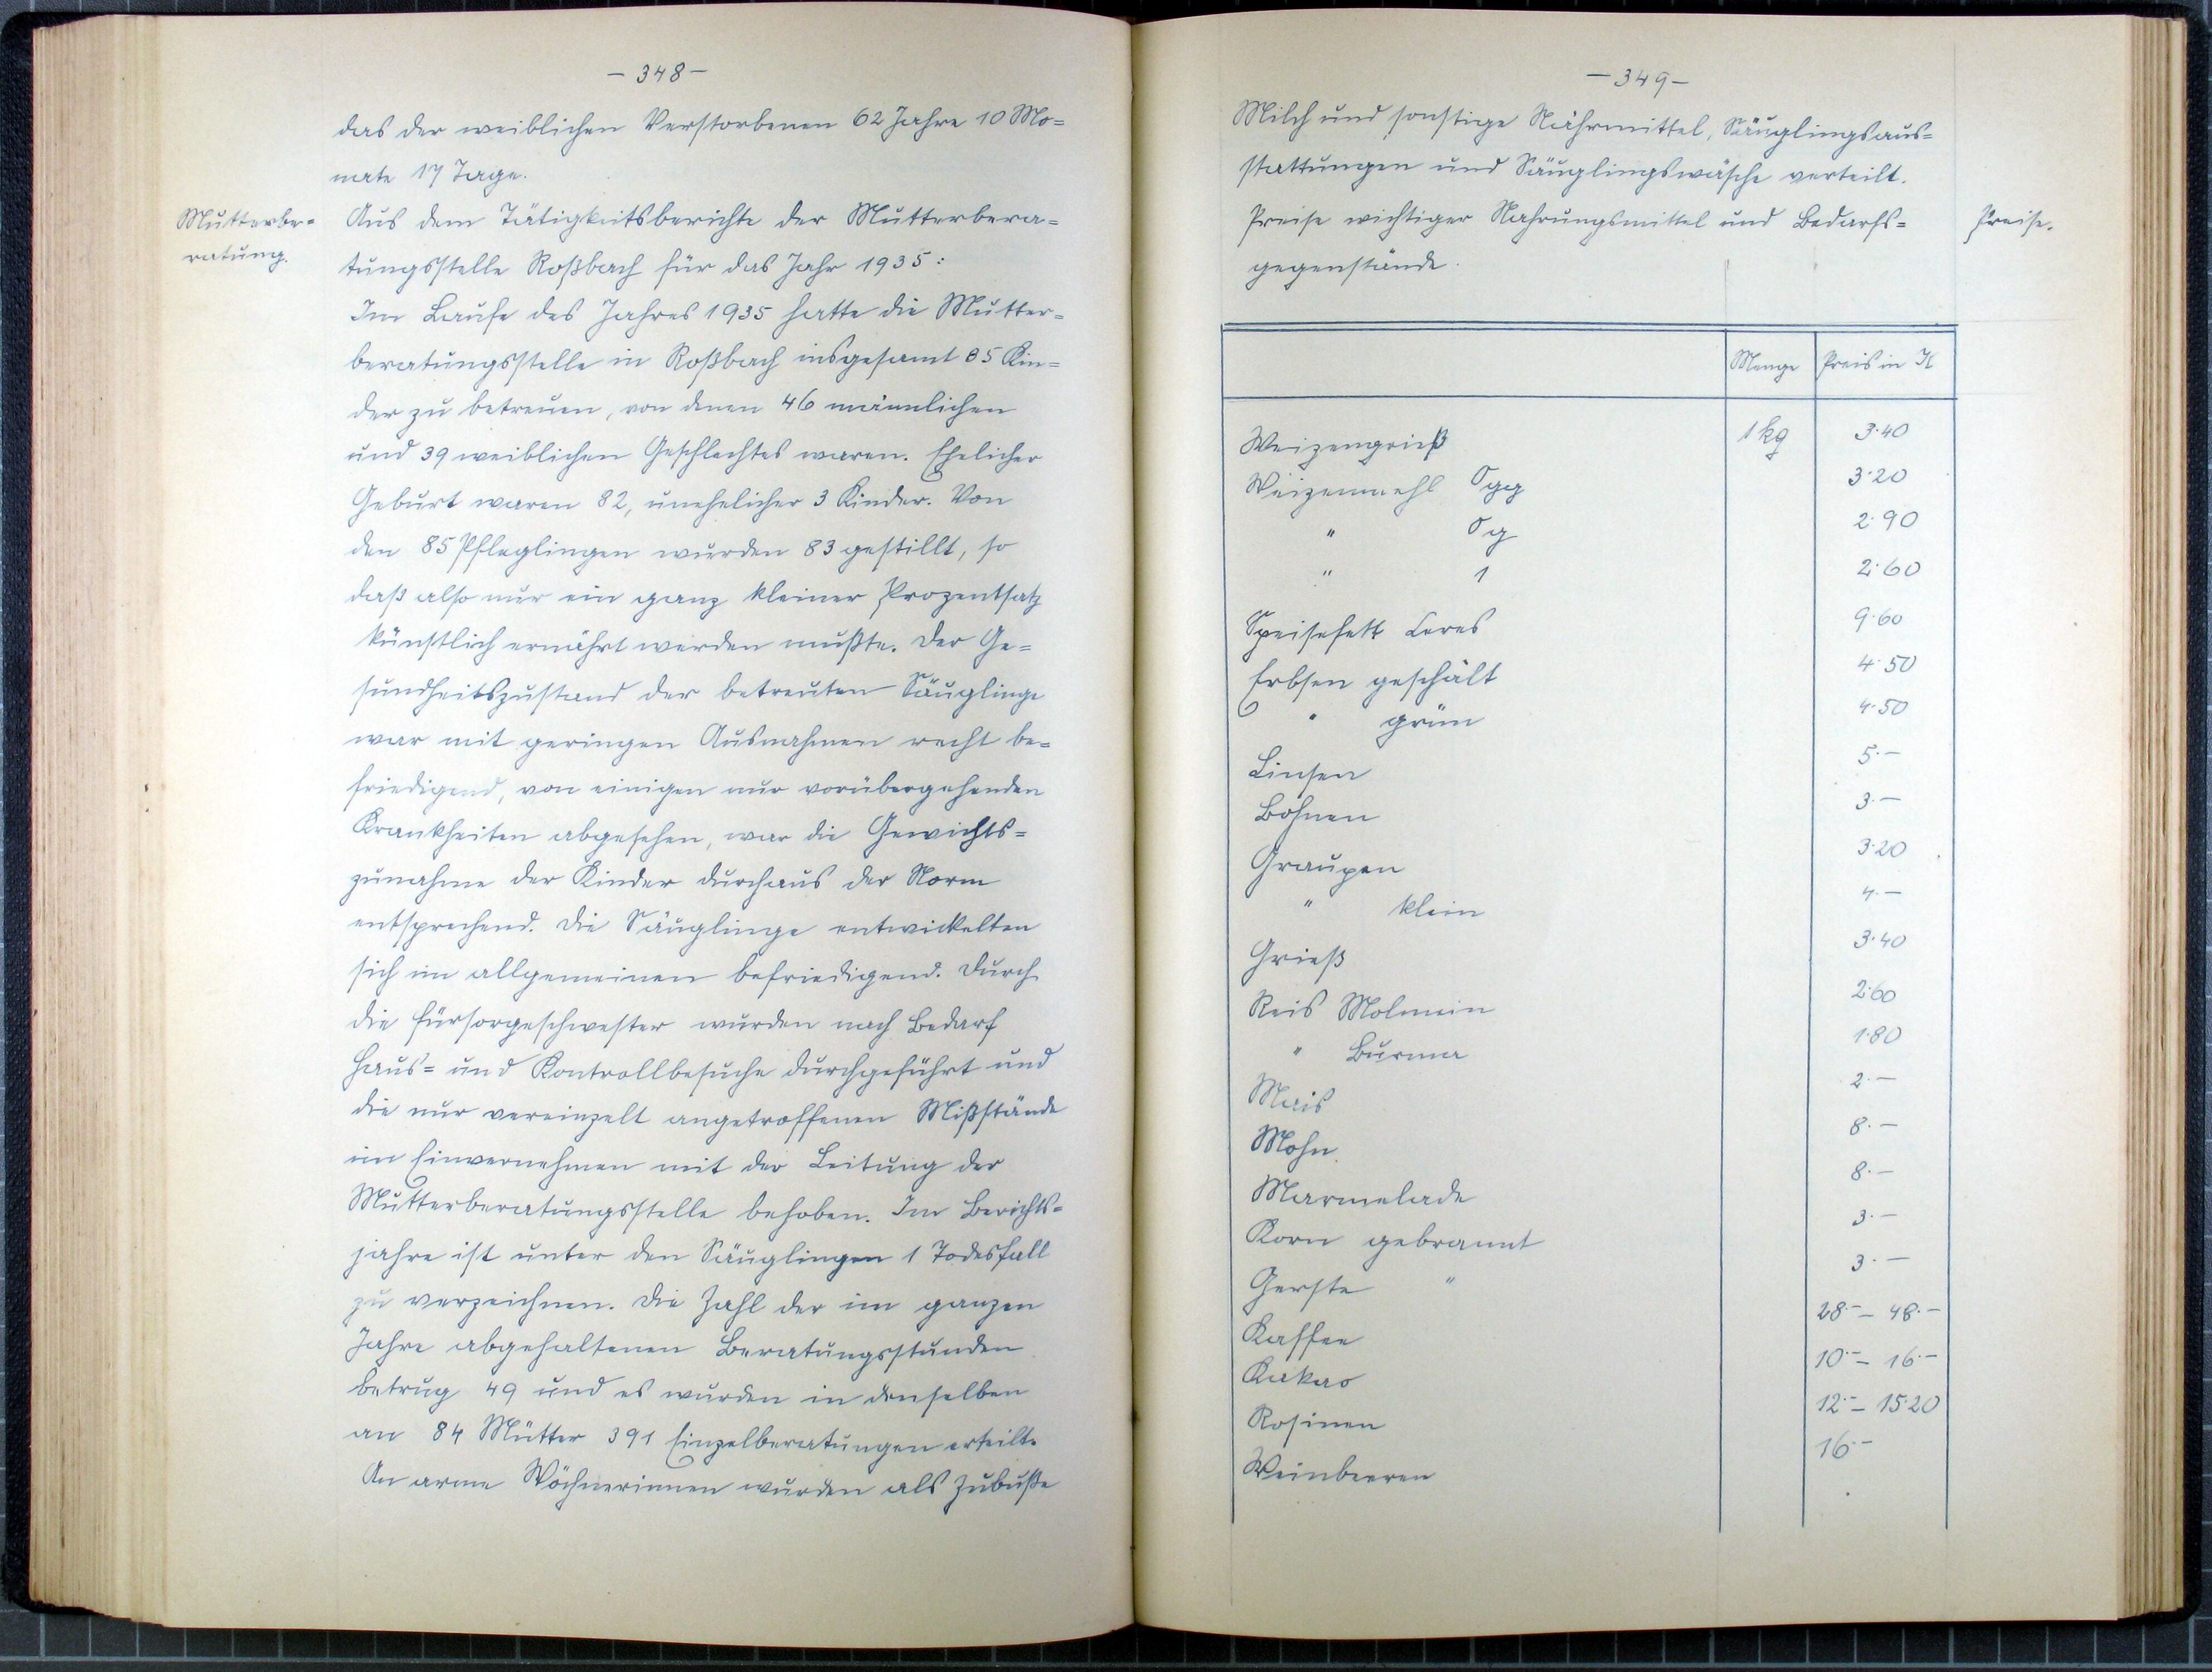 - 348 -
das der weiblichen Verstorbenen 62 Jahre 10 Mo=
nate 17 Tage.
Mutterbe=
ratung.
Aus dem Tätigkeitsberichte der Mutterbera=
tungsstelle Roßbach für das Jahr 1935:
Im Laufe des Jahres 1935 hatte die Mutter=
beratungsstelle in Roßbach insgesamt 85 Kin=
der zu betreuen, von denen 46 männlichen
und 39 weiblichen Geschlechtes waren. Ehelicher
Geburt waren 82, unehelicher 3 Kinder. Von
den 85 Pfleglingen wurden 83 gestillt, so
daß also nur ein ganz kleiner Prozentsatz
künstlich ernährt werden mußte. Der Ge=
sundheitszustand der betreuten Säuglinge
war mit geringen Ausnahmen recht be=
friedigend, von einigen nur vorübergehenden
Krankheiten abgesehen, war die Gewichts=
zunahme der Kinder durchaus der Norm
entsprechend. Die Säuglinge entwickelten
sich im allgemeinen befriedigend. Durch
die Fürsorgeschwester wurden nach Bedarf
Haus= und Kontrollbesuche durchgeführt und
die nur vereinzelt angetroffenen Mißstände
im Einvernehmen mit der Leitung der
Mutterberatungsstelle behoben. Im Berichts=
jahre ist unter den Säuglingen 1 Todesfall
zu verzeichnen. Die Zahl der im ganzen
Jahre abgehaltenen Beratungsstunden
betrug 49 und es wurden in denselben
an 84 Mütter 391 Einzelberatungen erteilt.
An arme Wöchnerinnen wurden als Zubuße
- 349 -
Milch und sonstige Nährmittel, Säuglingsaus=
stattungen und Säuglingswäsche verteilt.
Preise wichtiger Nahrungsmittel und Bedarfs=
gegenstände.
Preise.
Menge Preis in K
Weizengrieß 1 kg 3·40
Weizenmehl 0gg 3·20
" 0g 2·90
" 1 2·60
Speisefett Ceres 9·60
Erbsen geschält 4·50
" grün 4·50
Linsen 5·-
Bohnen 3·-
Graupen 3·20
" klein 4·-
Grieß 3·40
Reis Molmein 2·60
" Burma 1·80
Mais 2·-
Mohn 8·-
Marmelade 8·-
Korn gebrannt 3·-
Gerste " 3·-
Kaffee 28·- - 48·-
Kakao 10·- - 16·-
Rosinen 12·- - 15·20
Weinbeeren 16·-